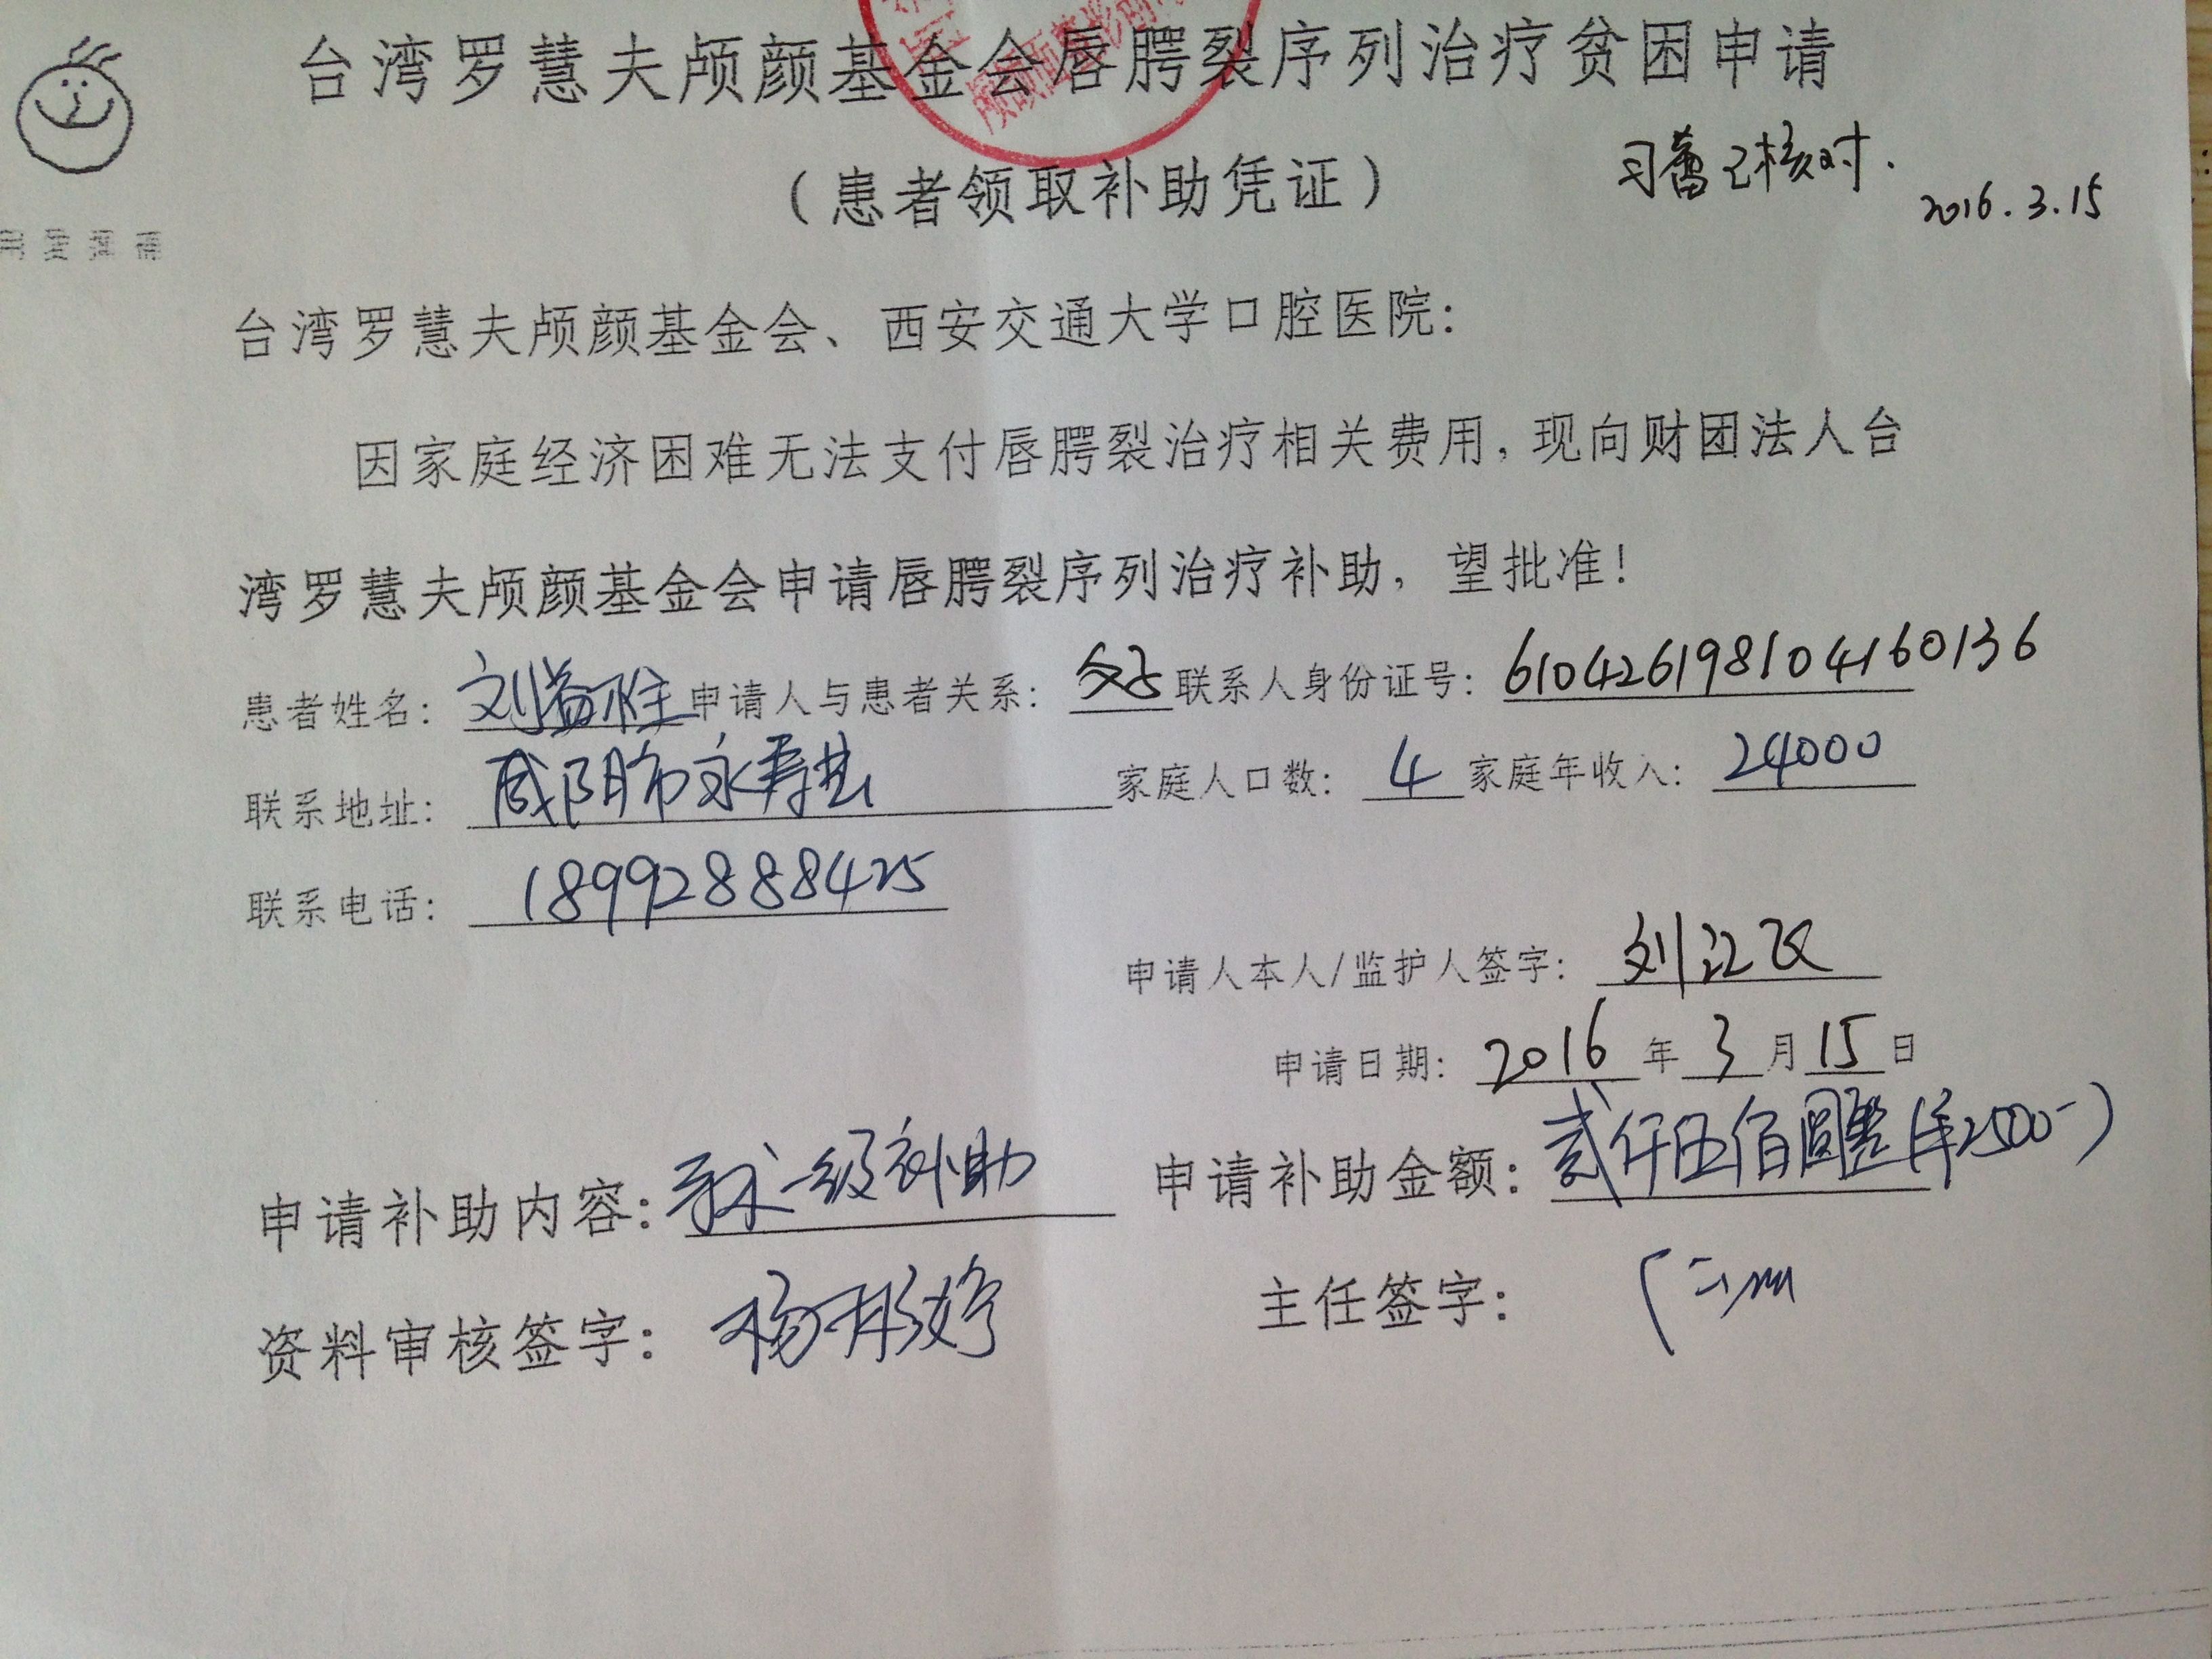 台湾罗慧夫颅颜基金会唇腭裂序列治疗贫困申请
（患者领取补助凭证）
习蕾已核对.
2016.3.15
用爱弥补
台湾罗慧夫颅颜基金会、西安交通大学口腔医院：
因家庭经济困难无法支付唇腭裂治疗相关费用，现向财团法人台
湾罗慧夫颅颜基金会申请唇腭裂序列治疗补助，望批准！
患者姓名：刘益胜 申请人与患者关系：父子 联系人身份证号：610426198104160136
联系地址：咸阳市永寿县 家庭人口数：4 家庭年收入：24000
联系电话：18992888425
申请人本人/监护人签字：刘江飞
申请日期：2016年3月15日
申请补助内容：手术一级补助 申请补助金额：贰仟伍佰圆整（¥2500-）
资料审核签字：杨彤婷 主任签字：